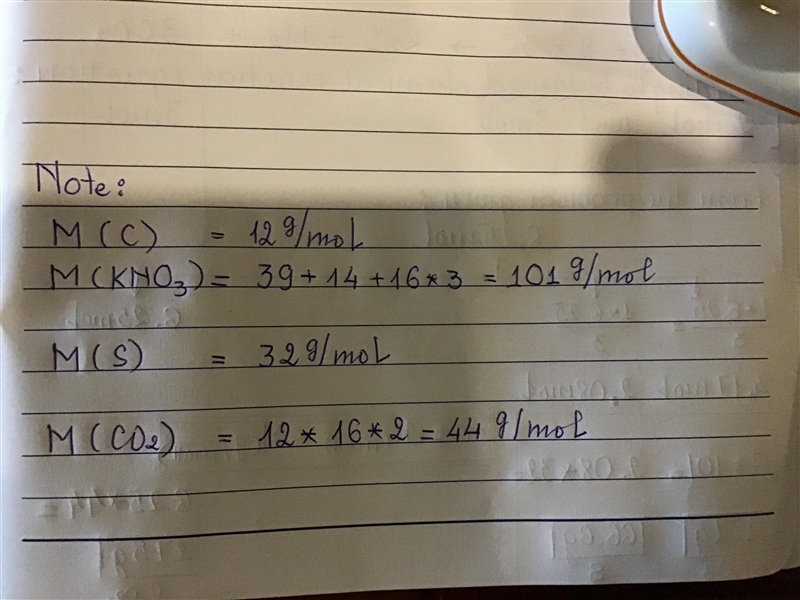 Note:
M(C) = 12 g/mol
M(KNO3) = 39+14+16*3 = 101 g/mol
M(S) = 32 g/mol
M(CO2) = 12*16*2 = 44 g/mol